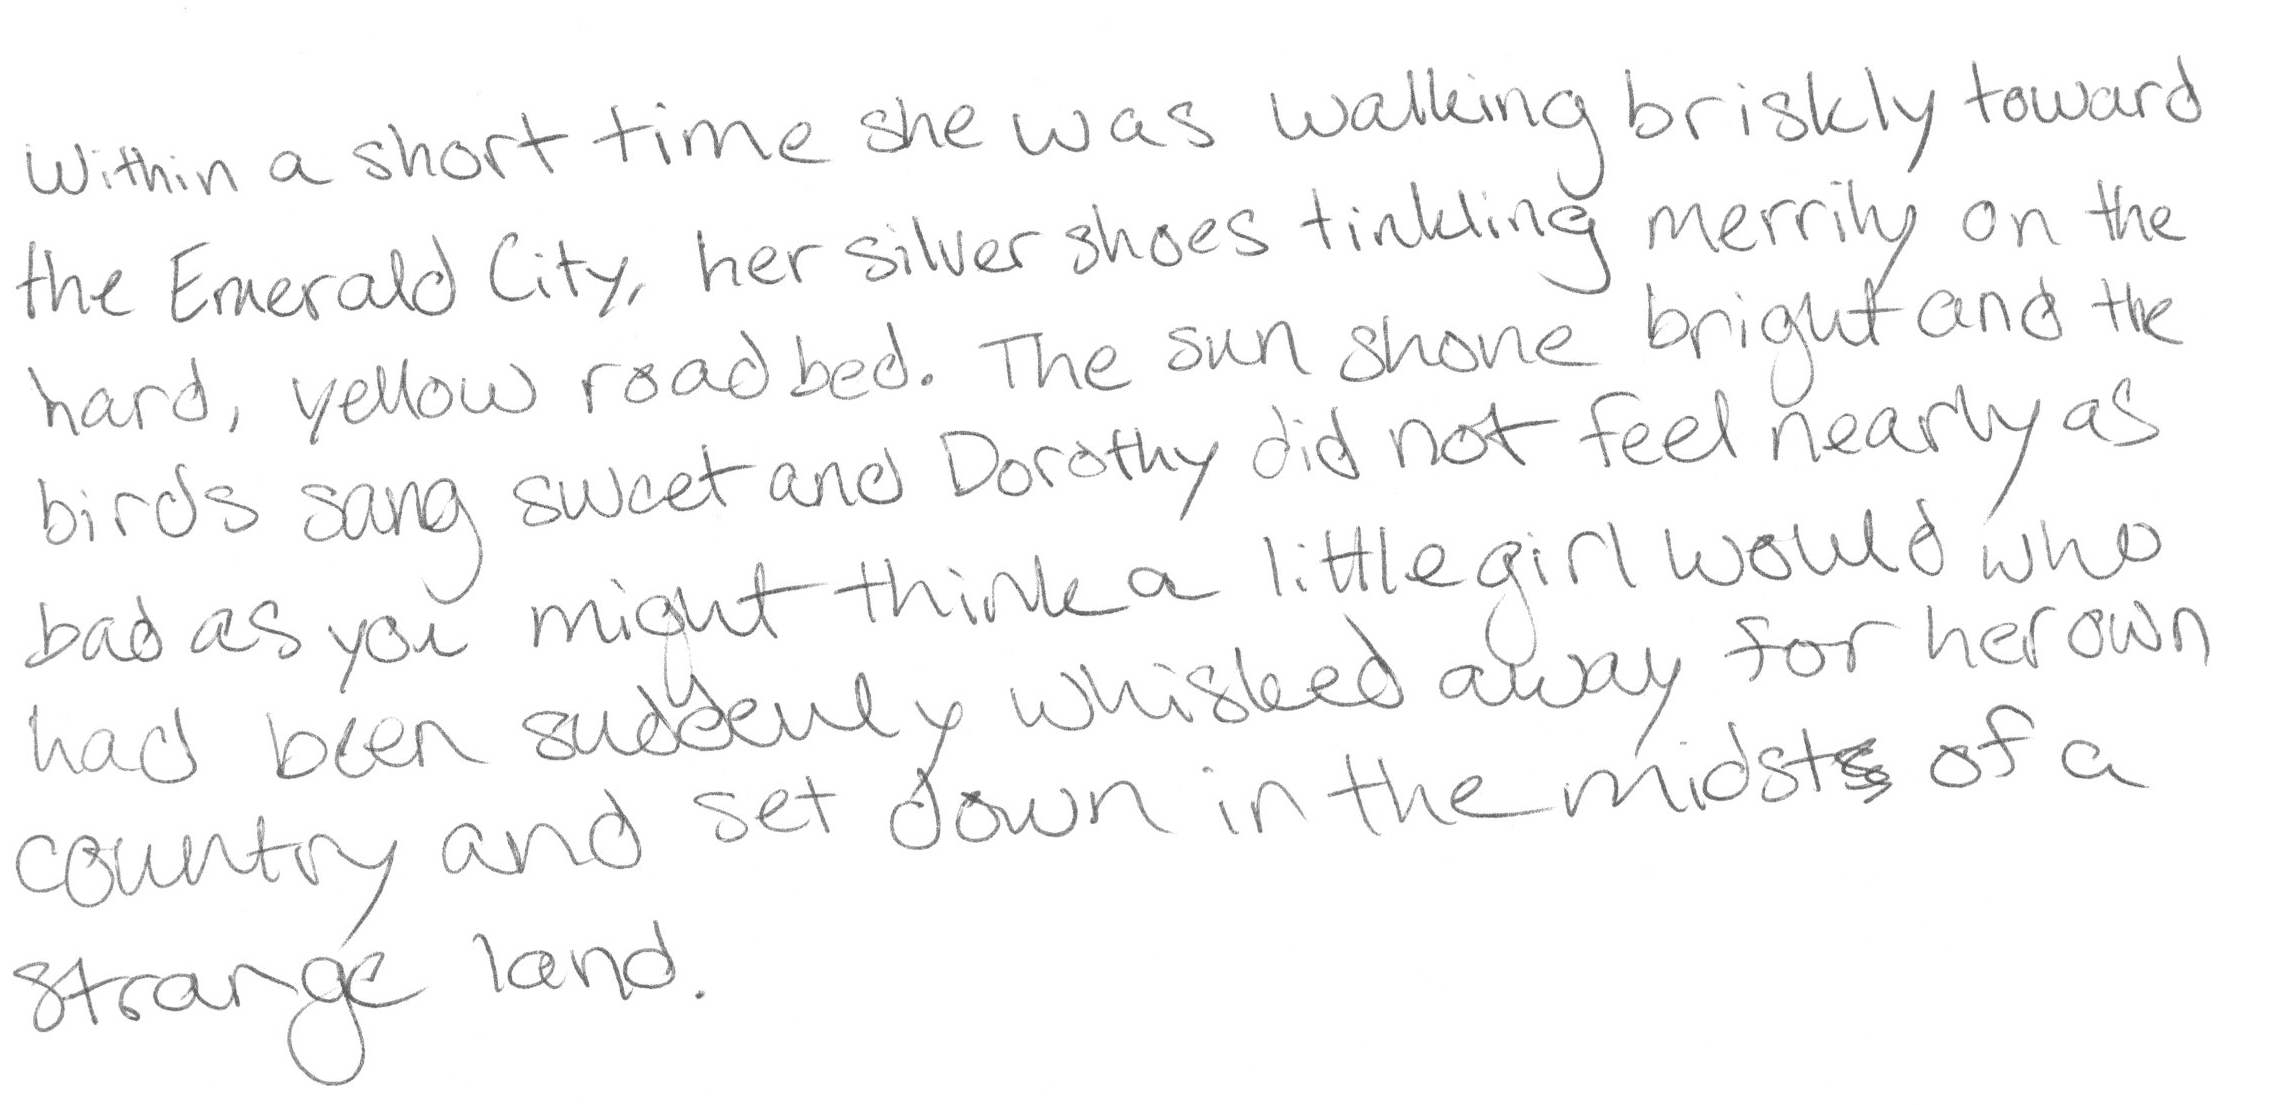 Within a short time she was walking briskly toward
the Emerald City, her silver shoes tinkling merrily on the
hard, yellow roadbed. The sun shone bright and the
birds sang sweet and Dorothy did not feel nearly as
bad as you might think a little girl would who
had been suddenly whisked away for her own
country and set down in the midst of a
strange land.